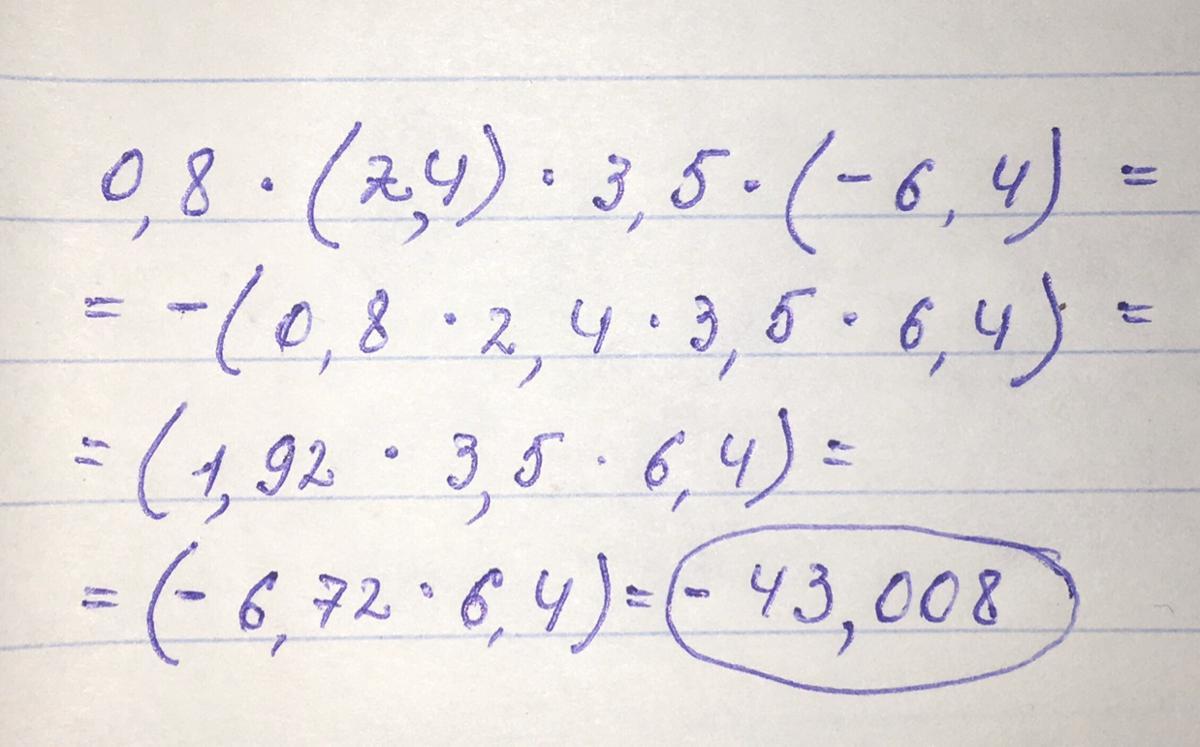 0,8 · (2,4) · 3,5 · (- 6,4) =
= -(0,8 · 2,4 · 3,5 · 6,4) =
= (1,92 · 3,5 · 6,4) =
= (- 6,72 · 6,4) = - 43,008